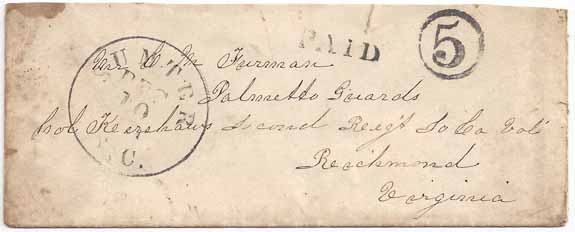 PAID
5
SUMTER
DEC
10
S.C.
Mr C. M Furman
Palmetto Guards
Col Kershaws Second Reg't So Ca Vol
Reichmond
Virginia